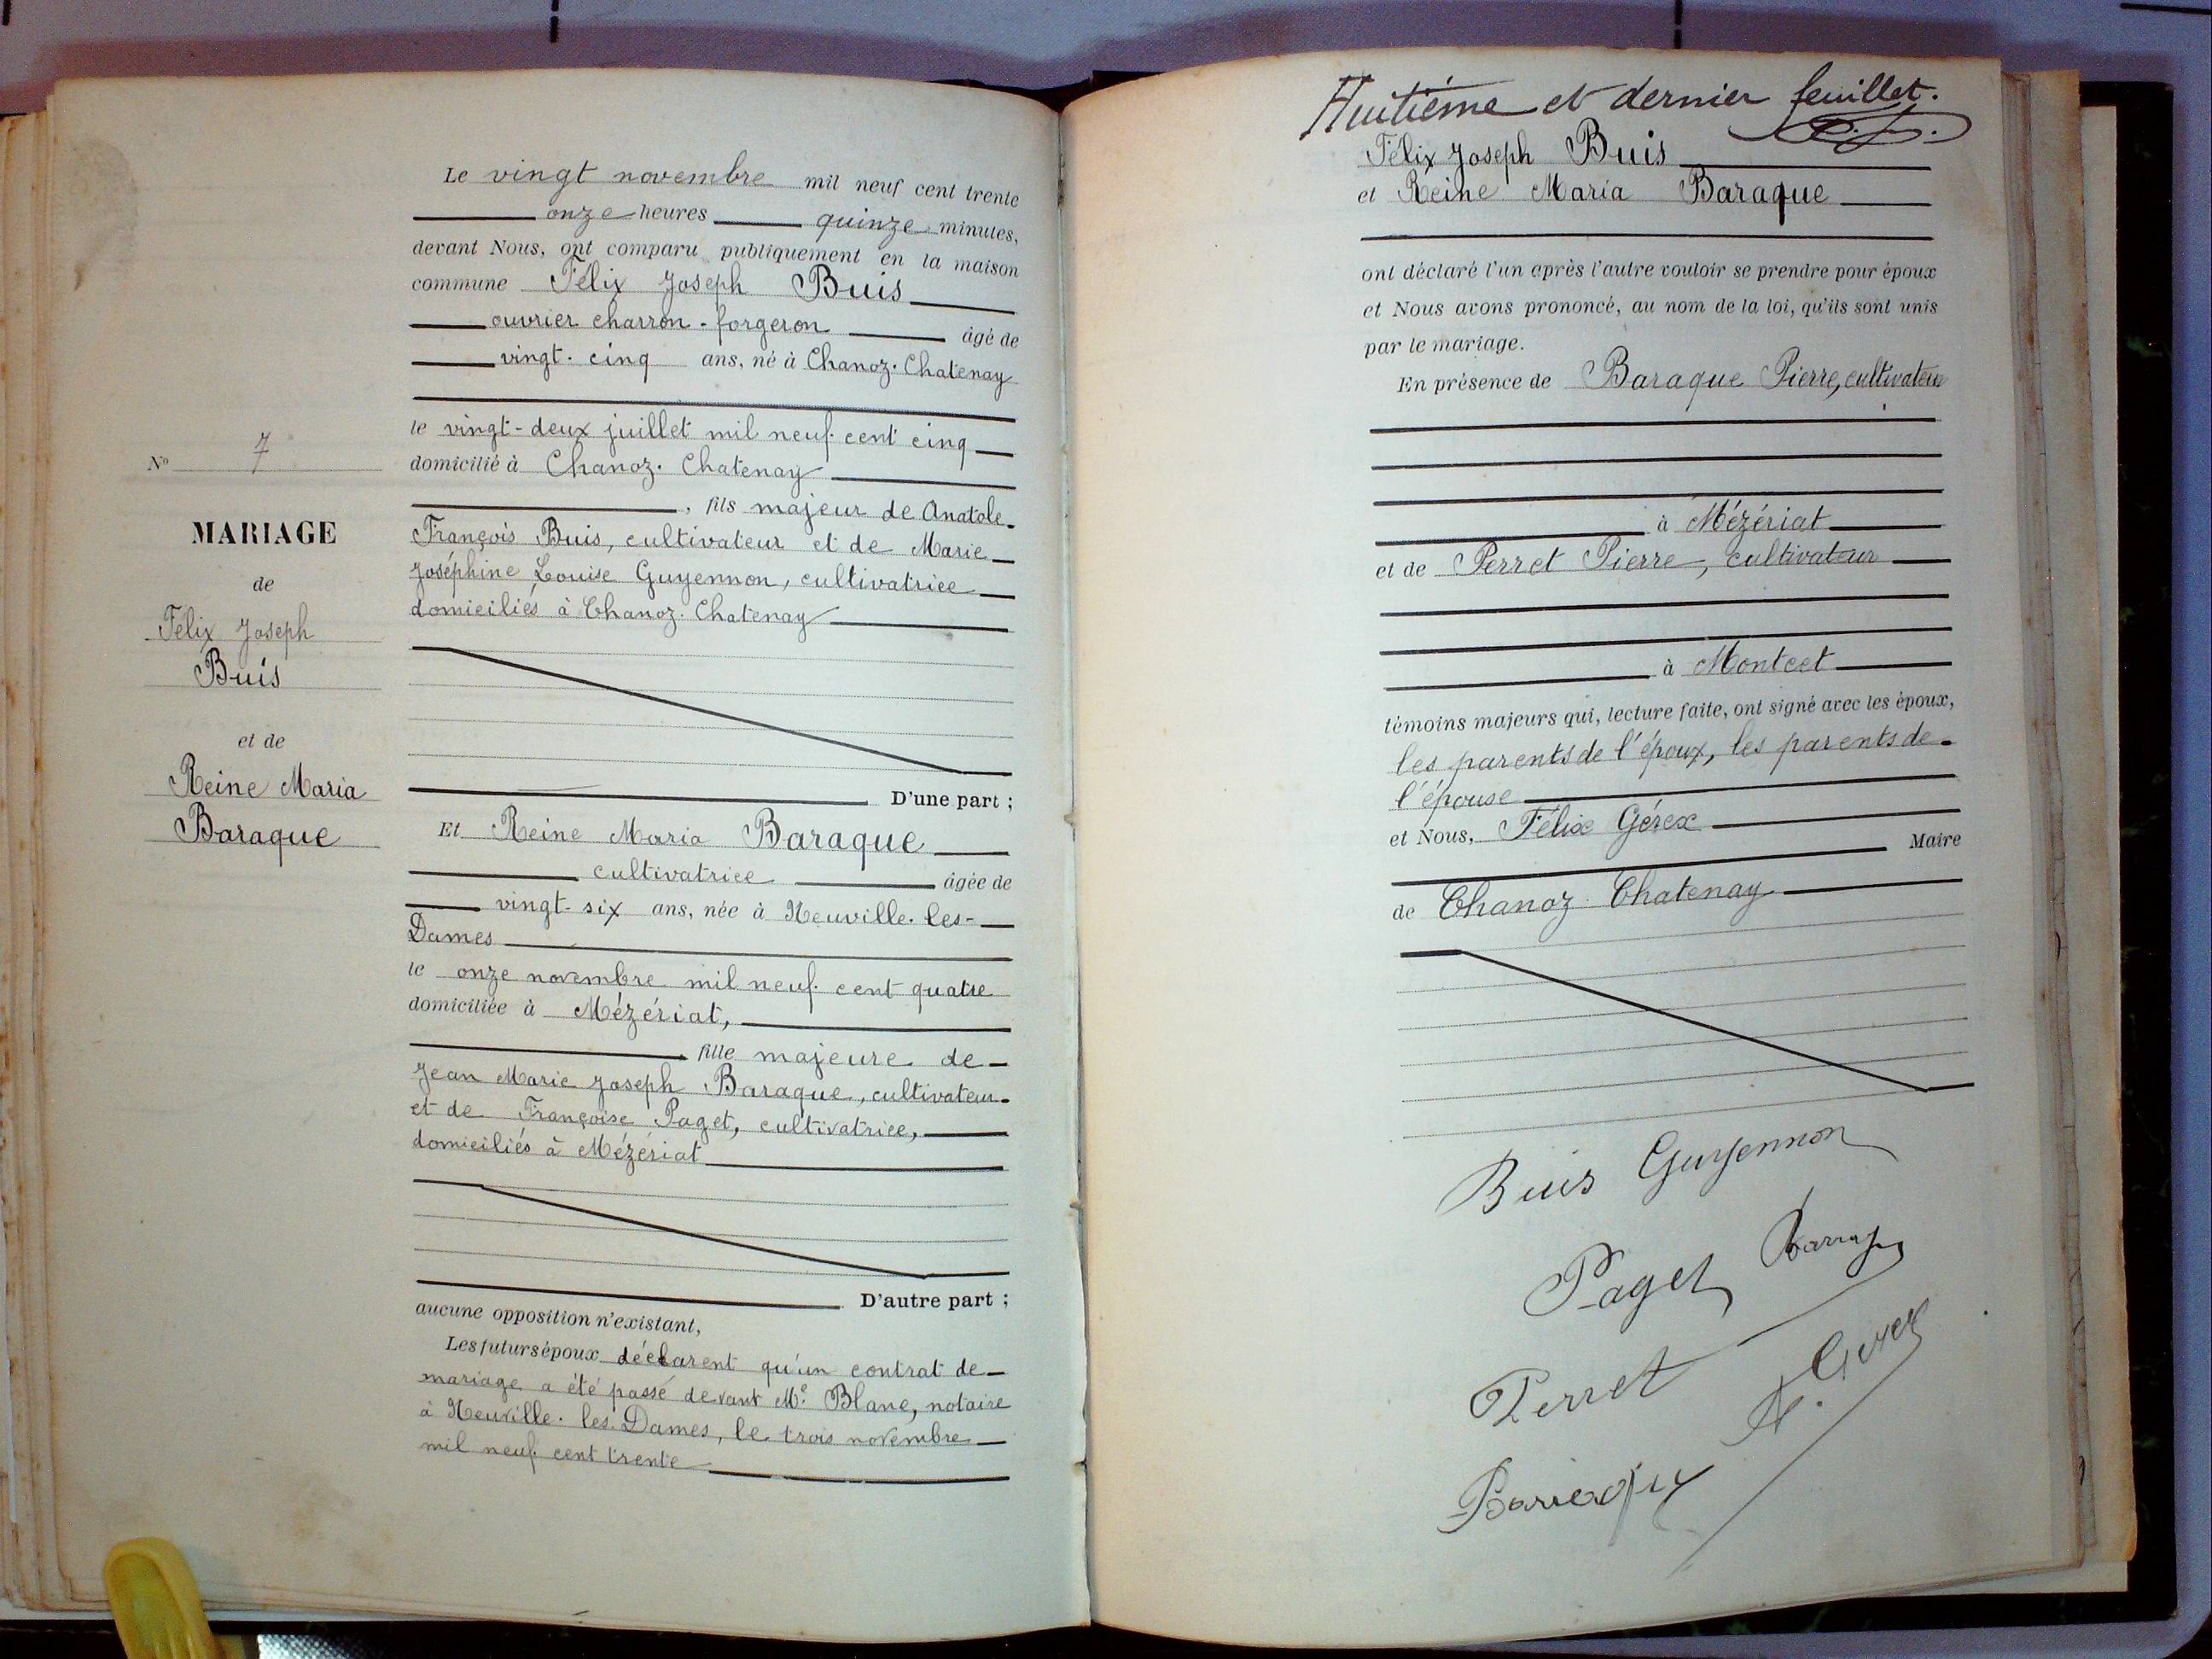 N° 7
MARIAGE
de
Félix Joseph
Buis
et de
Reine Maria
Baraque
Le vingt novembre mil neuf cent trente
onze heures quinze minutes,
devant Nous, ont comparu publiquement en la maison
commune Félix Joseph Buis
ouvrier charron-forgeron âgé de
vingt-cinq ans, né à Chanoz-Chatenay
le vingt-deux juillet mil neuf cent cinq
domicilié à Chanoz-Chatenay
, fils majeur de Anatole
François Buis, cultivateur et de Marie
Joséphine Louise Guyennon, cultivatrice
domiciliés à Chanoz-Chatenay
D'une part ;
Et Reine Maria Baraque
cultivatrice âgée de
vingt-six ans, née à Neuville-les-
Dames
le onze novembre mil neuf cent quatre
domiciliée à Mézériat,
fille majeure de
Jean Marie Joseph Baraque, cultivateur
et de Françoise Paget, cultivatrice,
domiciliés à Mézériat
D'autre part ;
aucune opposition n'existant,
Les futurs époux déclarent qu'un contrat de
mariage a été passé devant Me Blanc, notaire
à Neuville-les-Dames, le trois novembre
mil neuf cent trente
Huitième et dernier feuillet.
Félix Joseph Buis
et Reine Maria Baraque
ont déclaré l'un après l'autre vouloir se prendre pour époux
et Nous avons prononcé, au nom de la loi, qu'ils sont unis
par le mariage.
En présence de Baraque Pierre, cultivateur
à Mézériat
et de Perret Pierre, cultivateur
à Montcet
témoins majeurs qui, lecture faite, ont signé avec les époux,
les parents de l'époux, les parents de
l'épouse
et Nous, Félix Gérex
Maire
de Chanoz-Chatenay
Buis Guyennon
Paget
Perret